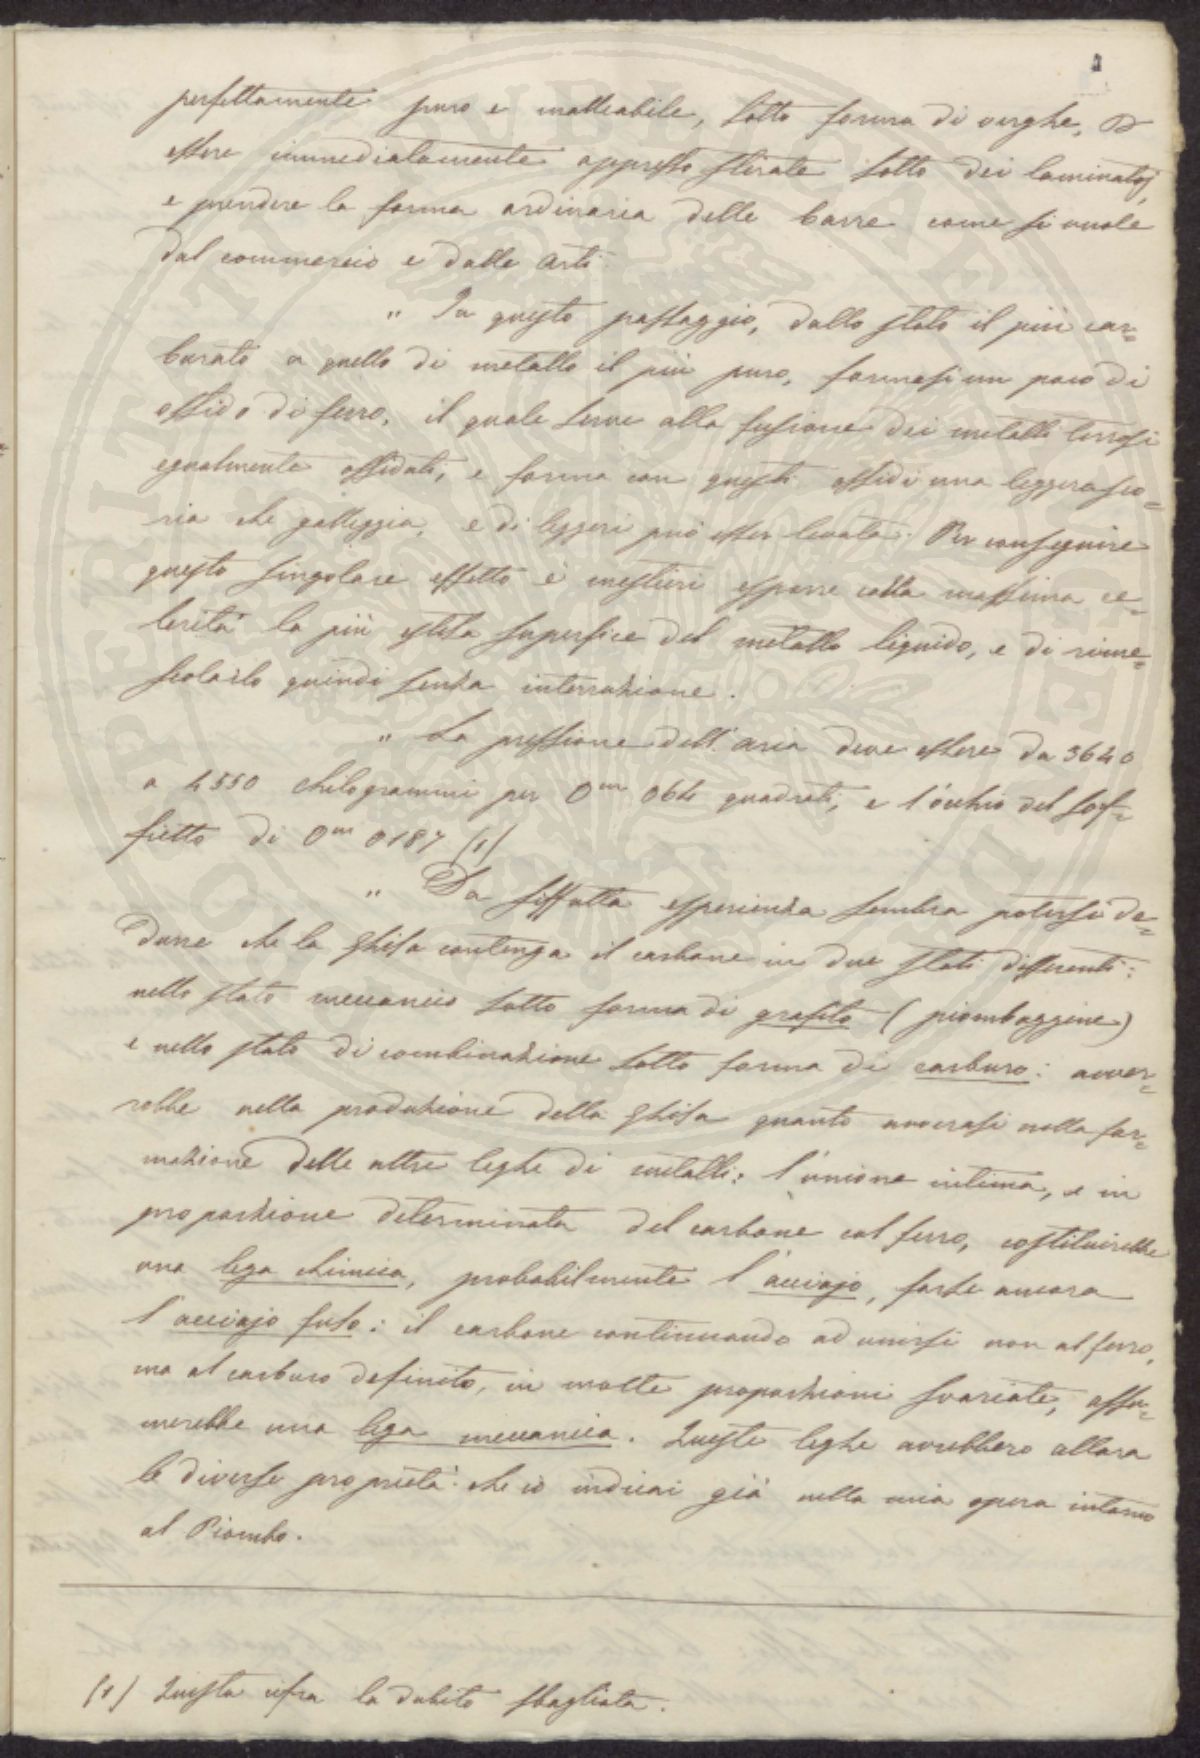 perfettamente puro e malleabile, sotto forma di verghe, 
essere immediatamente appresso stirate sotto dei laminatoj,
e prendere la forma ordinaria delle barre come si vuole
dal commercio e dalle arti.
" In questo passaggio, dallo stato il più car=
burato a quello di metallo il più puro, formasi un poco di
ossido di ferro, il quale serve alla fusione dei metalli terrosi
egualmente ossidati, e forma con questi ossidi una leggera sco=
ria che galleggia, e di leggeri può esser levata. Per conseguire
questo singolare effetto è mestieri esporre colla massima ce=
lerità la più estesa superfice del metallo liquido, e di rime=
scolarlo quindi senza interruzione.
" La pressione dell'aria deve essere da 3640
a 4550 chilogrammi per 0m 064 quadrati, e l'occhio del sof=
fietto di 0m 0187 (1)
" Da siffatta esperienza sembra potersi de=
durre che la Ghisa contenga il carbone in due stati differenti:
nello stato meccanico sotto forma di grafito (piombaggine)
e nello stato di combinazione sotto forma di carburo: avver=
rebbe nella produzione della Ghisa quanto avverasi nella for=
mazione delle altre leghe di metalli: l'unione intima, e in
proporzione determinata del carbone col ferro, costituirebbe
una lega chimica, probabilmente l'acciajo, forse ancora
l'acciajo fuso: il carbone continuando ad unirsi non al ferro,
ma al carburo definito, in molte proporzioni svariate, assu=
merebbe una lega meccanica. Queste leghe avrebbero allora
le diverse proprietà che io indicai già nella mia opera intorno
al Piombo.
(1) Questa cifra la dubito sbagliata.